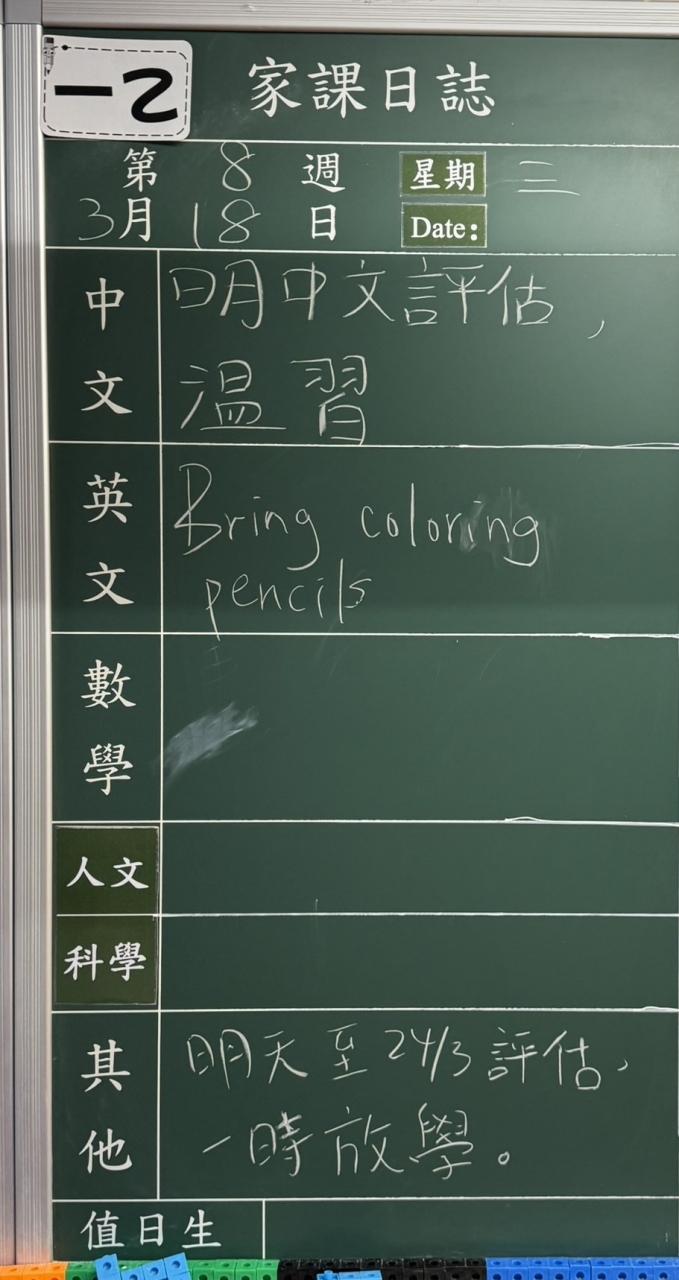 一乙
家課日誌
第 8 週 星期 三
3月 18 日 Date:
中文
明中文評估，
溫習
英文
Bring coloring
pencils
數學
人文
科學
其他
明天至24/3評估，
一時放學。
值日生